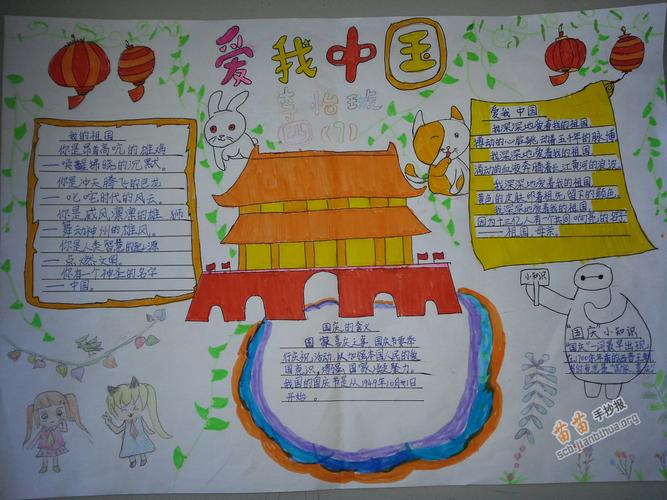 爱我中国
李怡班
四(1)
我的祖国
你是昂首高吭的雄鸡
——唤醒拂晓的沉默。
你是冲天腾飞的巨龙
——叱咤时代的风云。
你是威风凛凛的雄狮
——舞动神州的雄风。
你是人类智慧的起源
——点燃文明。
你有一个神圣的名字
——中国。
爱我中国
我深深地爱着我的祖国
搏动的心脏跳动着五千年的脉搏
我深深地爱着我的祖国
涌动的血液奔腾着长江黄河的浪波
我深深地爱着我的祖国
黄色的皮肤印着祖先留下的颜色
我深深地爱着我的祖国
因为十三亿人有一个共同响亮的名字
——祖国母亲。
国庆的含义
国家喜庆之事。国庆节要举
行庆祝活动,以加强本国人民的爱
国意识,增强国家凝聚力。
我国的国庆节是从1949年10月1日
开始。
小知识
"国庆小知识
"国庆"一词最早出现
在1700多年前的西晋王朝
苗苗手抄报
scb.jianbihua.org